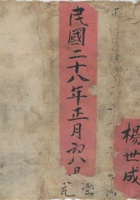 民國二十八年正月初八日
楊世成